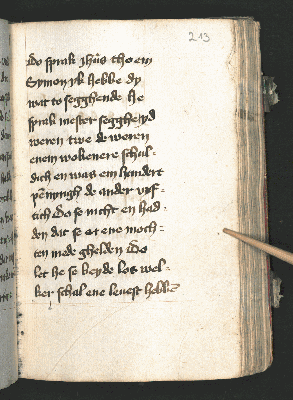 213
do sprak ihus tho em
Symon yk hebbe dy
wat to segghende he
sprak mester segghe yd
weren twe de weren
enem wokenere schul-
dich en was em hundert
pēnyngh de ander vif-
tich do se nicht en had-
den dat se et ene moch-
ten wedde ghelden do
let he se beyde los wel-
ker schal ene leuest hebbē